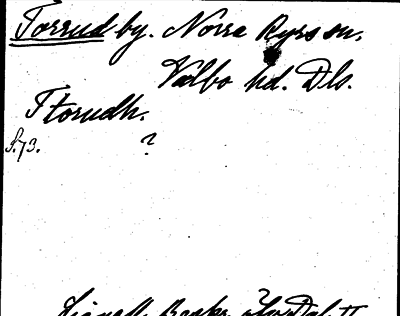 Torrud by. Norra Ryrs sn.
Valbo hd. Dls.
T torudh.
s. 73. ?
Lignell, Beskr. Dal II